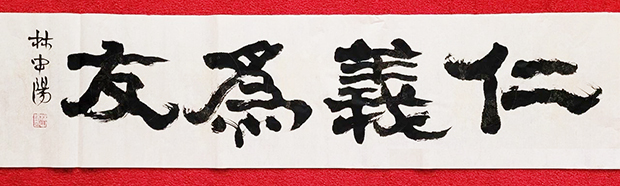 仁義為友
林中陽